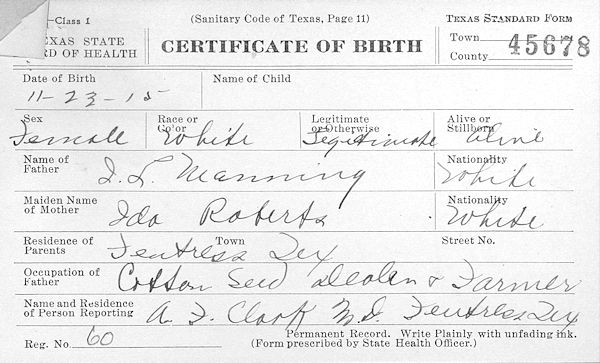 -Class 1 (Sanitary Code of Texas, Page 11) Texas Standard Form
EXAS STATE
RD OF HEALTH
CERTIFICATE OF BIRTH
Town
County
45678
Date of Birth Name of Child
11-23-15
Sex Race or Co'or Legitimate or Otherwise Alive or Stillborn
Female White Legitimate Alive
Name of Father I. L. Manning Nationality White
Maiden Name of Mother Ida Roberts Nationality White
Residence of Parents Fentress Town Tex Street No.
Occupation of Father Cotton Seed Dealer & Farmer
Name and Residence of Person Reporting A. F. Clark M.D. Fentress Tex
Reg. No. 60 Permanent Record. Write Plainly with unfading ink.
(Form prescribed by State Health Officer.)